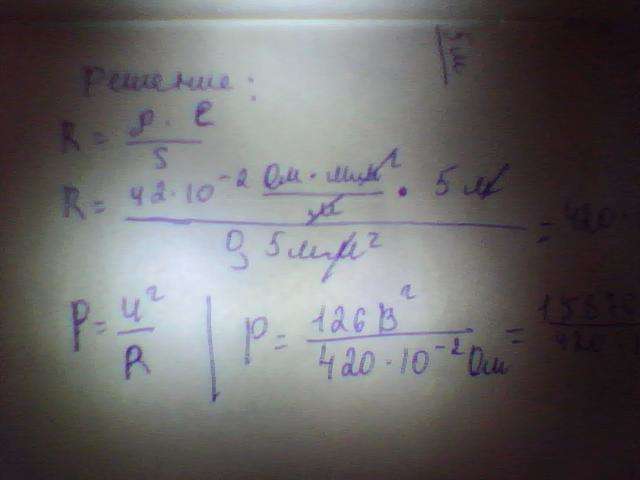 5м
Решение:
R = ρ · l / S
R = 42·10⁻² Ом · мм² / м · 5 м / 0,5 мм² = 420
P = U² / R | P = 126 В² / 420·10⁻² Ом =